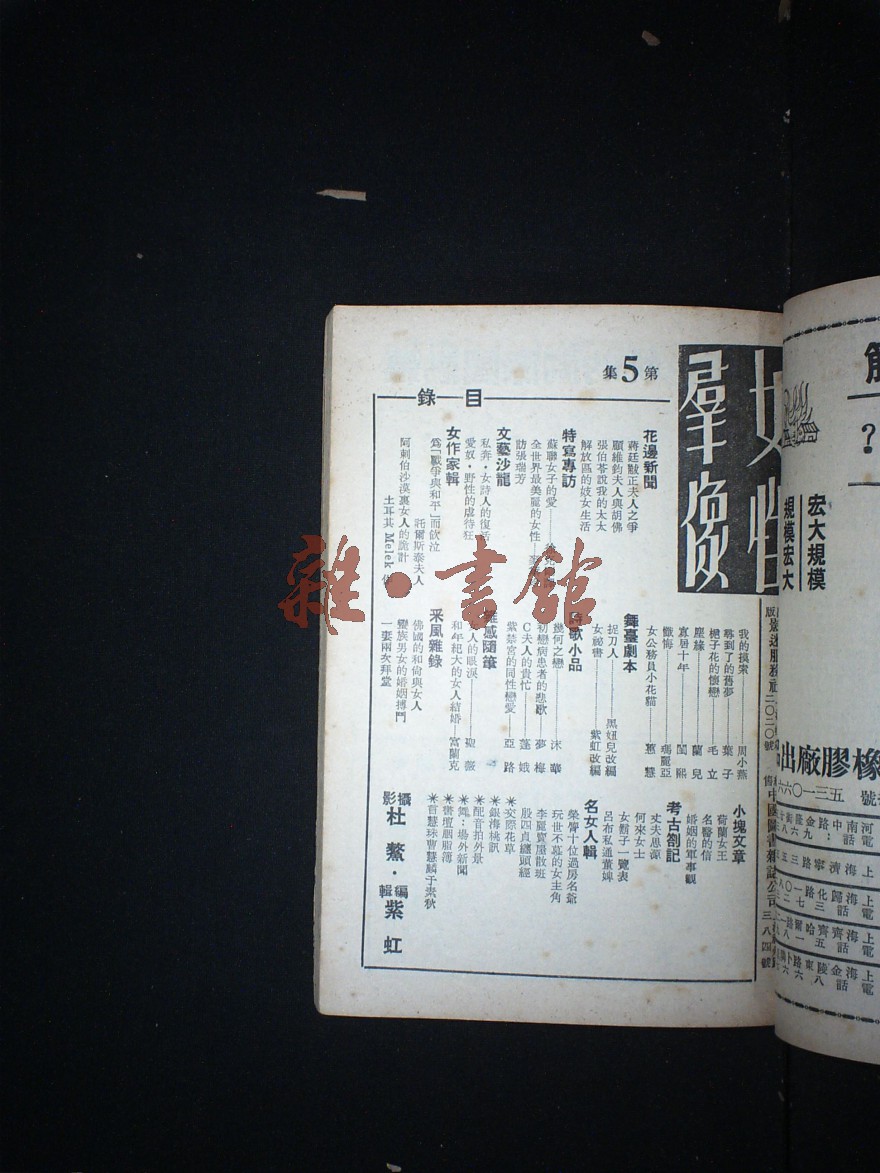 女性
羣像
第5集
目錄
花邊新聞
蔣廷黻正夫人之爭
顧維鈞夫人與胡佛
張伯苓說我的太太
解放區的妓女生活
特寫專訪
蘇聯女子的愛
全世界最美麗的女性
訪張瑞芳
文藝沙龍
私奔·女詩人的復活
愛奴·野性的虐待狂
女作家輯
為「戰爭與和平」而飲泣
託爾斯泰夫人
阿剌伯沙漠裏女人的詭計
土耳其 Melek
我的摸索——周小燕
尋到了的舊夢——葉子
梔子花的懷戀——毛立
塵緣——蘭兒
寡居十年——閨熙
懺悔——瑪麗亞
女公務員小花貓——蕙慧
舞臺劇本
捉刀人——黑妞兒改編
女祕書——紫虹改編
詩歌小品
幾何之戀——沫華
初戀病患者的悲歌——夢梅
C夫人的貴忙——蓬娥
紫禁宮的同性戀愛——亞路
雜感隨筆
女人的眼淚——聖薇
和年紀大的女人結婚——富蘭克
采風雜錄
佛國的和尚與女人
蠻族男女的婚姻搏鬥
一妻兩次拜堂
小塊文章
荷蘭女王
名醫的信
婚姻的軍事觀
考古劄記
丈夫思源
何來女士
女鬍子一覽表
呂布私通董婢
名女人輯
榮膺十位過房名爺
玩世不恭的女主角
李麗賣屋散班
殷四貞纏頭經
*交際花草
*銀海桃訊
*配音拍外景
*舞:場外新聞
*書壇胭脂簿
*百慧珠曹慧麟于素秋
攝影 杜鰲·編輯 紫虹
中國圖書雜誌公司
三八四號
?
宏大規模
規模宏大
橡膠廠出